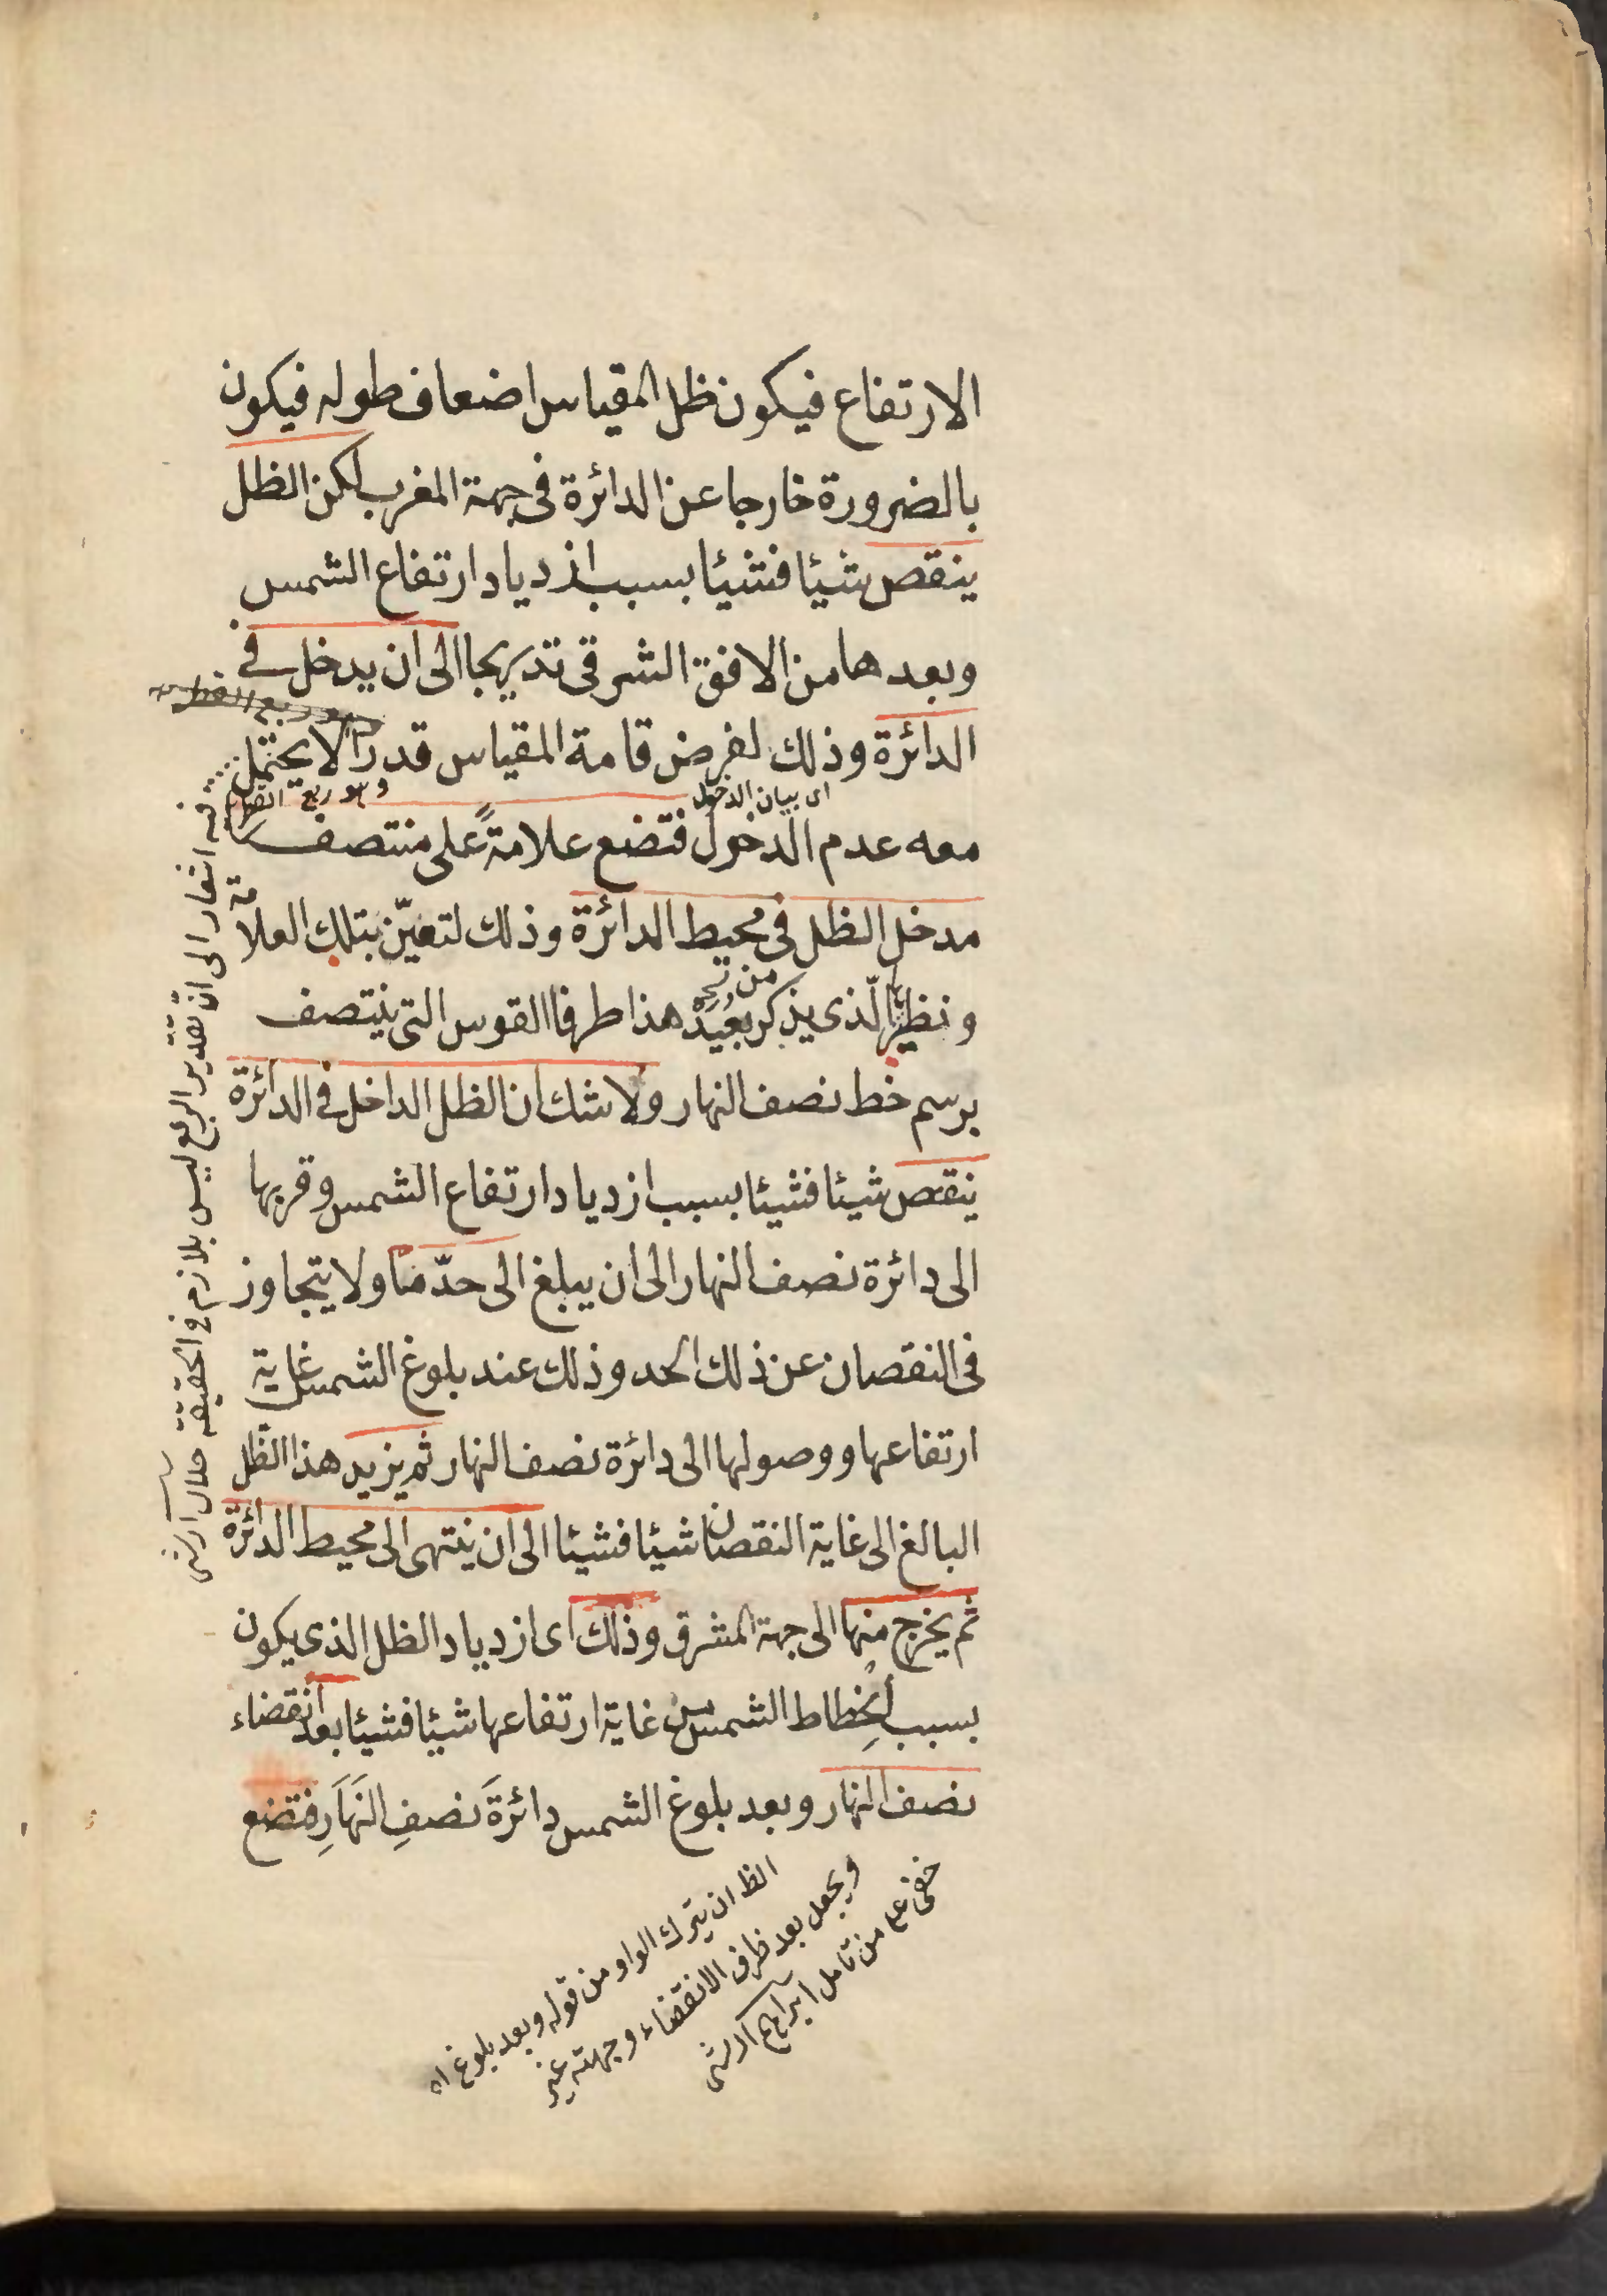 الارتفاع فيكون ظل المقياس اضعاف طوله فيكون
بالضرورة خارجا عن الدائرة فى جهة المغرب لكن الظل
ينقص شيئا فشيئا بسبب ازدياد ارتفاع الشمس
وبعدها من الافق الشرقى تدريجا الى ان يدخل فى
الدائرة وذلك لفرض قامة المقياس قدرا لا يحتمل
وهو ربع القطر
اى بيان الدخول
معه عدم الدخول فتضع علامةً على منتصف
مدخل الظل فى محيط الدائرة وذلك لتعيّن بتلك العلامة
ونظيرها الّذى يذكر بُعَيْدَ هذا طرفا القوس التى ينتصف
برسم خط نصف النهار ولا شك ان الظل الداخل فى الدائرة
ينقص شيئا فشيئا بسبب ازدياد ارتفاع الشمس وقربها
الى دائرة نصف النهار الى ان يبلغ الى حدّ مّا ولا يتجاوز
فى النقصان عن ذلك الحد وذلك عند بلوغ الشمس غاية
ارتفاعها ووصولها الى دائرة نصف النهار ثم يزيد هذا الظل
البالغ الى غاية النقصان شيئا فشيئا الى ان ينتهى الى محيط الدائرة
ثم يخرج منها الى جهة المشرق وذلك اى ازدياد الظل الذى يكون
بسبب اِنْحِطاط الشمس من غاية ارتفاعها شيئا فشيئا بعد انقضاء
نصف النهار وبعد بلوغ الشمس دائرةَ نصفِ النَهَارِ فتضع
فيه اشعار الى انّ تقدير الربع ليس بلازم فى الحقيقة
الظ ان يترك الواو من قوله وبعد بلوغ اه
ويجعل بعد ظرف الانقضاء وجهته غير
خفى على من تامل ابراهيم